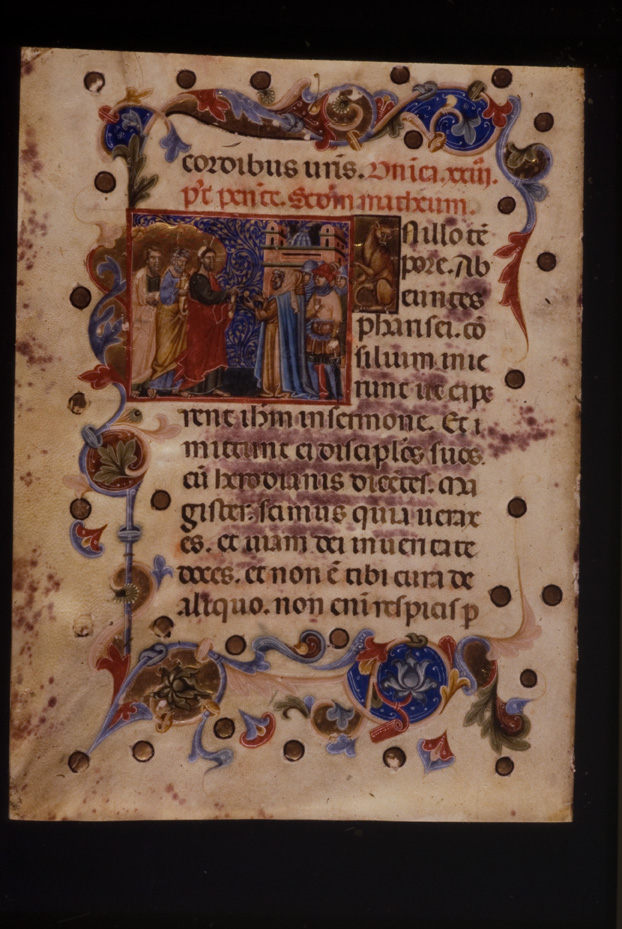 cordibus uris. Dnica. xxiiij.
pt pent̄e. Scd̄m matheum.
N illo tē
pore. Ab
euntes
pharisei. cō
silium inie
runt ut cape
rent ihm in sermone. Et i
mittunt ei discip̄los suos
cū herodianis dic̄etes. Ma
gister. scimus quia uerax
es. et uiam dei in ueritate
doces. et non ē tibi cura de
aliquo. non enī respicis p